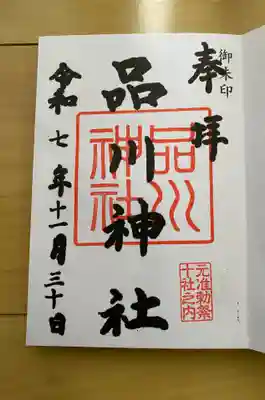 御朱印
奉拝
品川神社
品川神社
元准勅祭
十社之内
令和七年十一月三十日